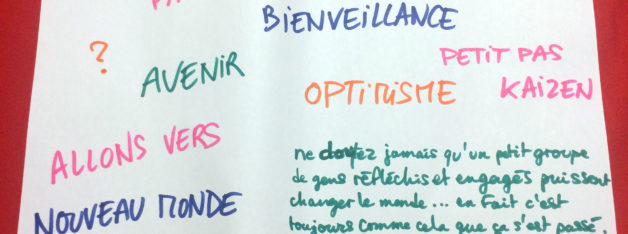 BIENVEILLANCE
?
AVENIR
PETIT PAS
KAIZEN
OPTIMISME
ALLONS VERS
NOUVEAU MONDE
ne doutez jamais qu'un petit groupe
de gens réfléchis et engagés puissent
changer le monde... en Fait c'est
toujours comme cela que ça s'est passé.